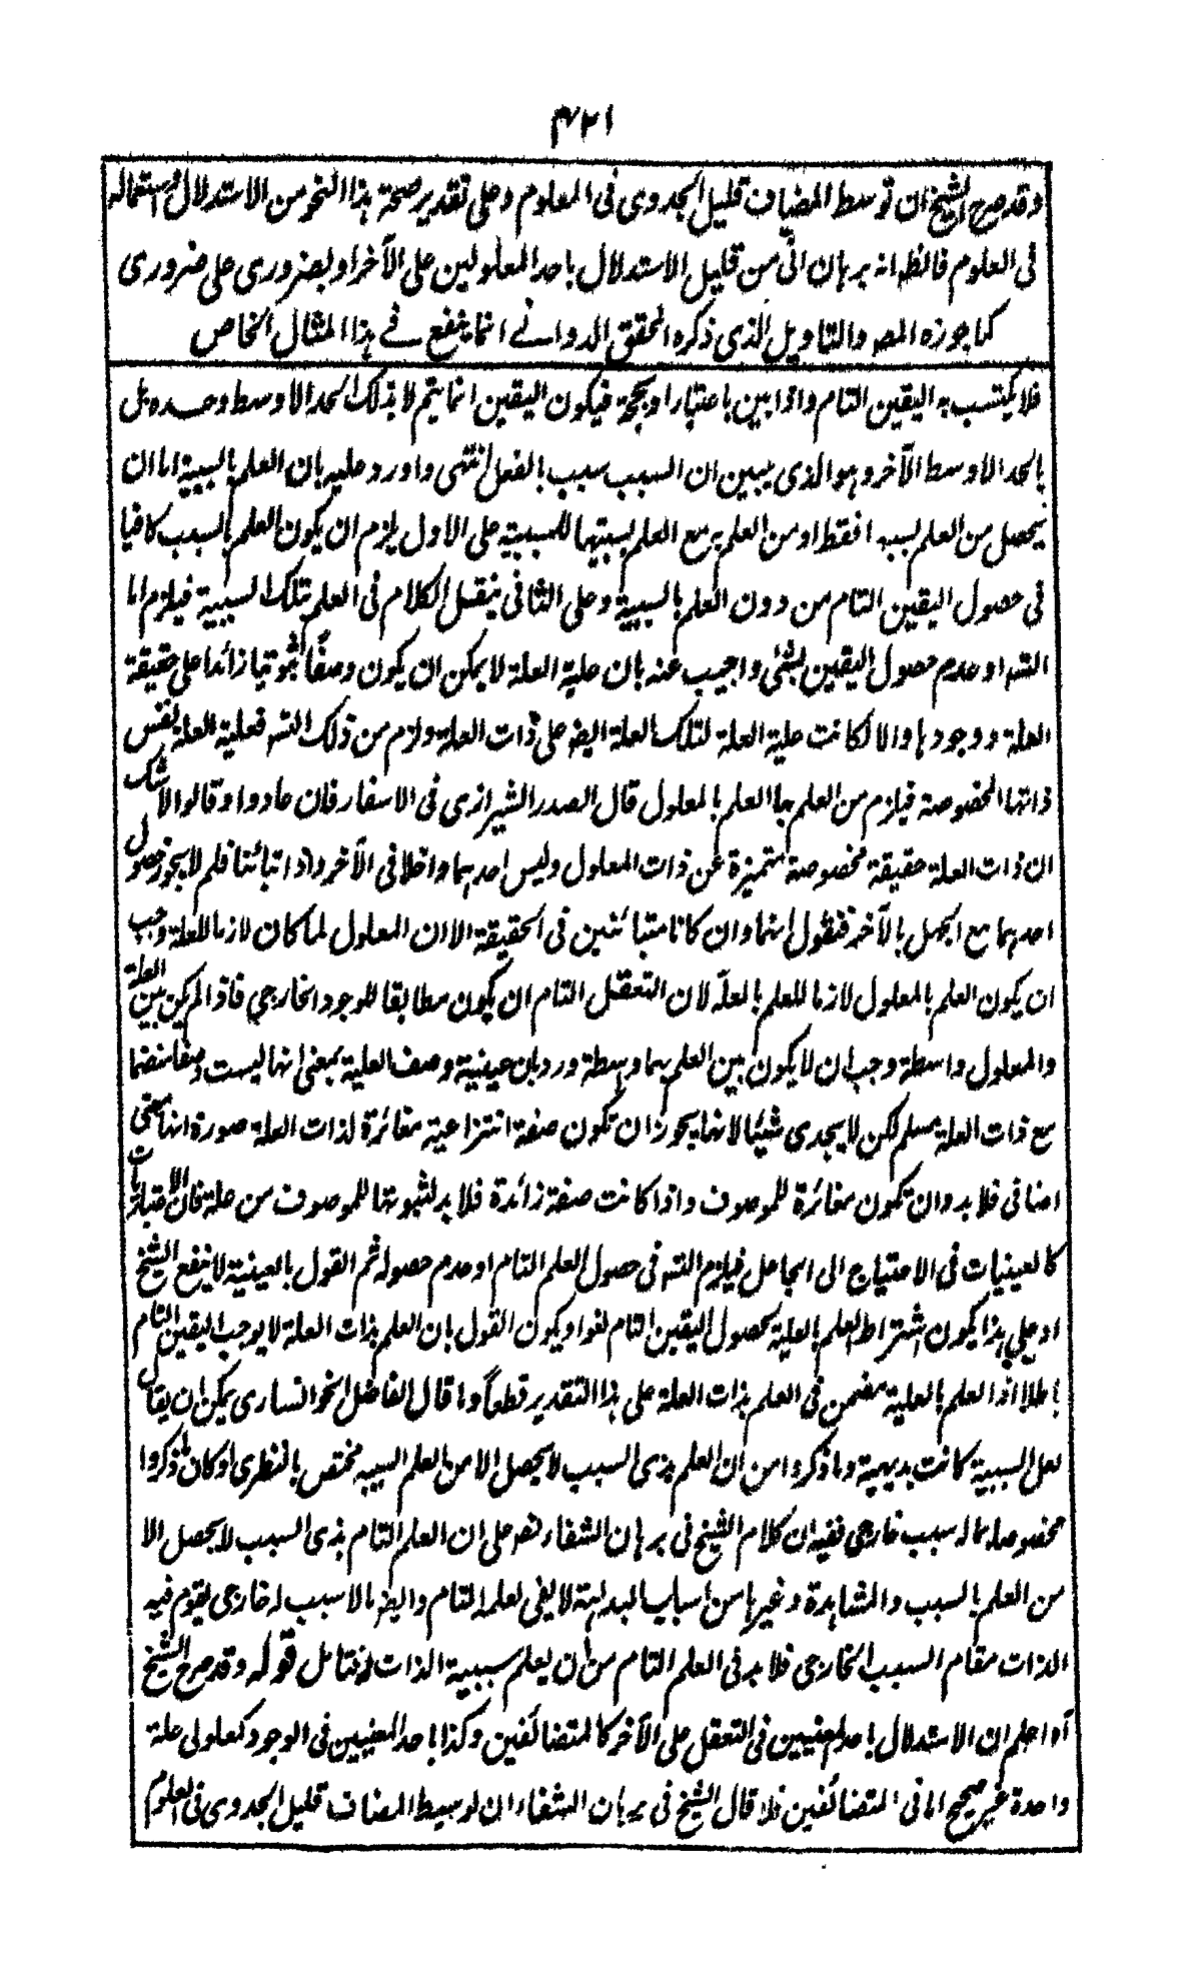 ٤٢١
وقد صرح الشيخ ان توسط المضاف قليل الجدوى فى المعلوم وعلى تقدير صحة هذا النحو من الاستدلال واستعماله
فى العلوم فالظه انه برهان انى من قليل الاستدلال باحد المعلولين على الآخر او بضرورى على ضرورى
كما جوزه المصـ والتاويل الذى ذكره المحقق الدوانے انما ينفع فے هذا المثال الخاص
فلا يكتسب به اليقين التام واذا بين باعتبار او بحجة فيكون اليقين انما يتم لا بذلك الحد الاوسط وحده بل
بالحد الاوسط الآخر وهو الذى يبين ان السبب سبب بالفعل انتهى واورد عليه بان العلم بالسببية اما ان
يحصل من العلم بسببه افقط او من العلم به مع العلم بسببيتها للسببية على الاول يلزم ان يكون العلم بالسبب كافيا
فى حصول اليقين التام من دون العلم بالسببية وعلى الثانى ينقل الكلام فى العلم بتلك السببية فيلزم اما
التسـ او عدم حصول اليقين بشئى واجيب عنه بان علية العلة لا يمكن ان يكون وصفًا ثبوتيا زائدا على حقيقة
العلة ووجودها والا لكانت علية العلة لتلك العلة ايضـ على ذات العلة ولزم من ذلك التسـ فعلية العلة نفس
ذاتها المخصوصة فيلزم من العلم بها العلم بالمعلول قال الصدر الشيرازى فى الاسفار فان عادوا وقالوا لا شك
ان ذات العلة حقيقة مخصوصة متميزة عن ذات المعلول وليس احدهما داخلا فى الآخر واذا تباينتا فلم لا يجوز حصول
احدهما مع الجهل بالآخر فنقول انهما وان كانا متبائنين فى الحقيقة الا ان المعلول لما كان لازما للعلة وجب
ان يكون العلم بالمعلول لازما للعلم بالعلة لان التعقل التام ان يكون مطابقا للوجود الخارجي فاذ الم يكن بين العلة
والمعلول واسطة وجب ان لا يكون بين العلم بهما واسطة ورد بان عينية وصف العلية بمعنى انها ليست وصفا منضما
مع ذات العلة مسلم لكن لا يجدى شيئا لانها يجوز ان تكون صفة انتزاعية مغائرة لذات العلة صورة انها معنى
اضافى فلا بد وان تكون مغائرة للموصوف واذا كانت صفة زائدة فلا بد لثبوتها للموصوف من علة فان الاعتباريات
كالعينيات فى الاحتياج الى الجاعل فيلزم التسـ فى حصول العلم التام او عدم حصوله ثم القول بالعينية لا ينفع الشيخ
اذ على هذا يكون اشتراط العلم بالعلية لحصول اليقين التام لغوا ويكون القول بان العلم بذات العلة لا يوجب اليقين التام
باطلا اذا العلم بالعلية مضمن فى العلم بذات العلة على هذا التقدير قطعاً وما قال الفاضل الخوانسارى يمكن ان يقال
لعل السببية كانت بديهية وما ذكروا من ان العلم بذى السبب لا يحصل الا من العلم السببه مختص بالنظرى او كان ما ذكروا
مخصوصا بما له سبب خارجى ففيه ان كلام الشيخ فى برهان الشفاء نصـ على ان العلم التام بذى السبب لا يحصل الا
من العلم بالسبب والمشاهدة وغيرها من اسباب البداهة لا يفى لعلمه التام وايضـ ما لا سبب له خارجى يقوم فيه
الذات مقام السبب الخارجى فلا بد فى العلم التام من ان يعلم سببية الذات له فتامل قوله وقد صرح الشيخ
آه اعلم ان الاستدلال باحد المعنيين فى التعقل على الآخر كالمتضائفين وكذا باحد المعنيين فى الوجود كمعلولى علة
واحدة غير صحيح اما فى المتضائفين فلما قال الشيخ فى برهان الشفاء ان توسيط المضاف قليل الجدوى فى العلوم